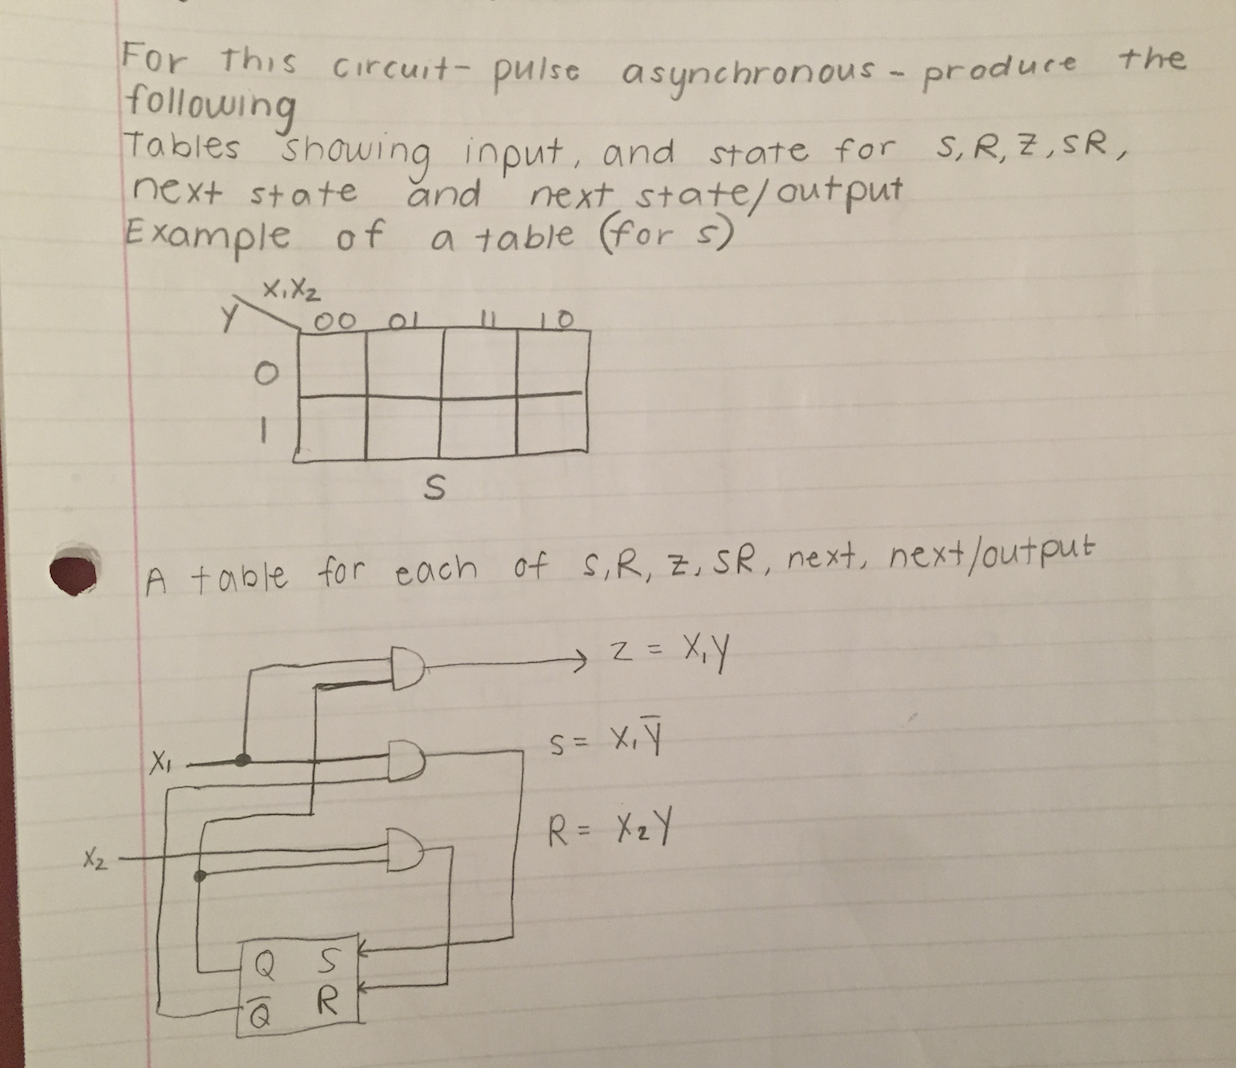 For this circuit- pulse asynchronous - produce the
following
Tables showing input, and state for S, R, Z, SR,
next state and next state/output
Example of a table (for s)
X₁X₂
Y 00 01 11 10
0
1
S
A table for each of S, R, Z, SR, next, next/output
Z = X₁Y
X₁
S = X₁Y̅
X₂
R = X₂Y
Q S
Q̅ R